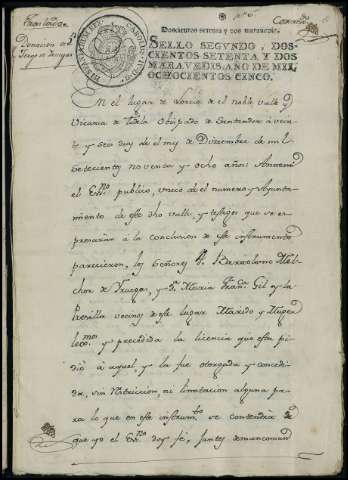 Doscientos setenta y dos maravedis.
SELLO SEGVNDO, DOS-
CIENTOS SETENTA Y DOS
MARAVEDIS, AÑO DE MIL
OCHOCIENTOS CINCO.
Donacion
En el lugar de de el noble valle y
Vicaria de Tudela Obispado de Santander a vein-
te y seis dias de el mes de Diziembre de mil
setecientos noventa y ocho años: Ante mi
el Essno publico, unico de el numero y Ayunta-
miento de este dho valle, y testigos que se ex-
presarán a la conclusion de este instrumento
parecieron, los Señores Dn Bartolome Mel-
chor de y Da Maria Franca Gil y la
vecinos de este lugar Marido y Muger
lexmos y precedida la licencia que esta pi-
dio a aquel, y la fue otorgada y concedi-
da, sin restriccion, ni limitacion alguna pa-
ra lo que en este instrumto se contendrá de
que yo el Essno doy fe, juntos demancomund